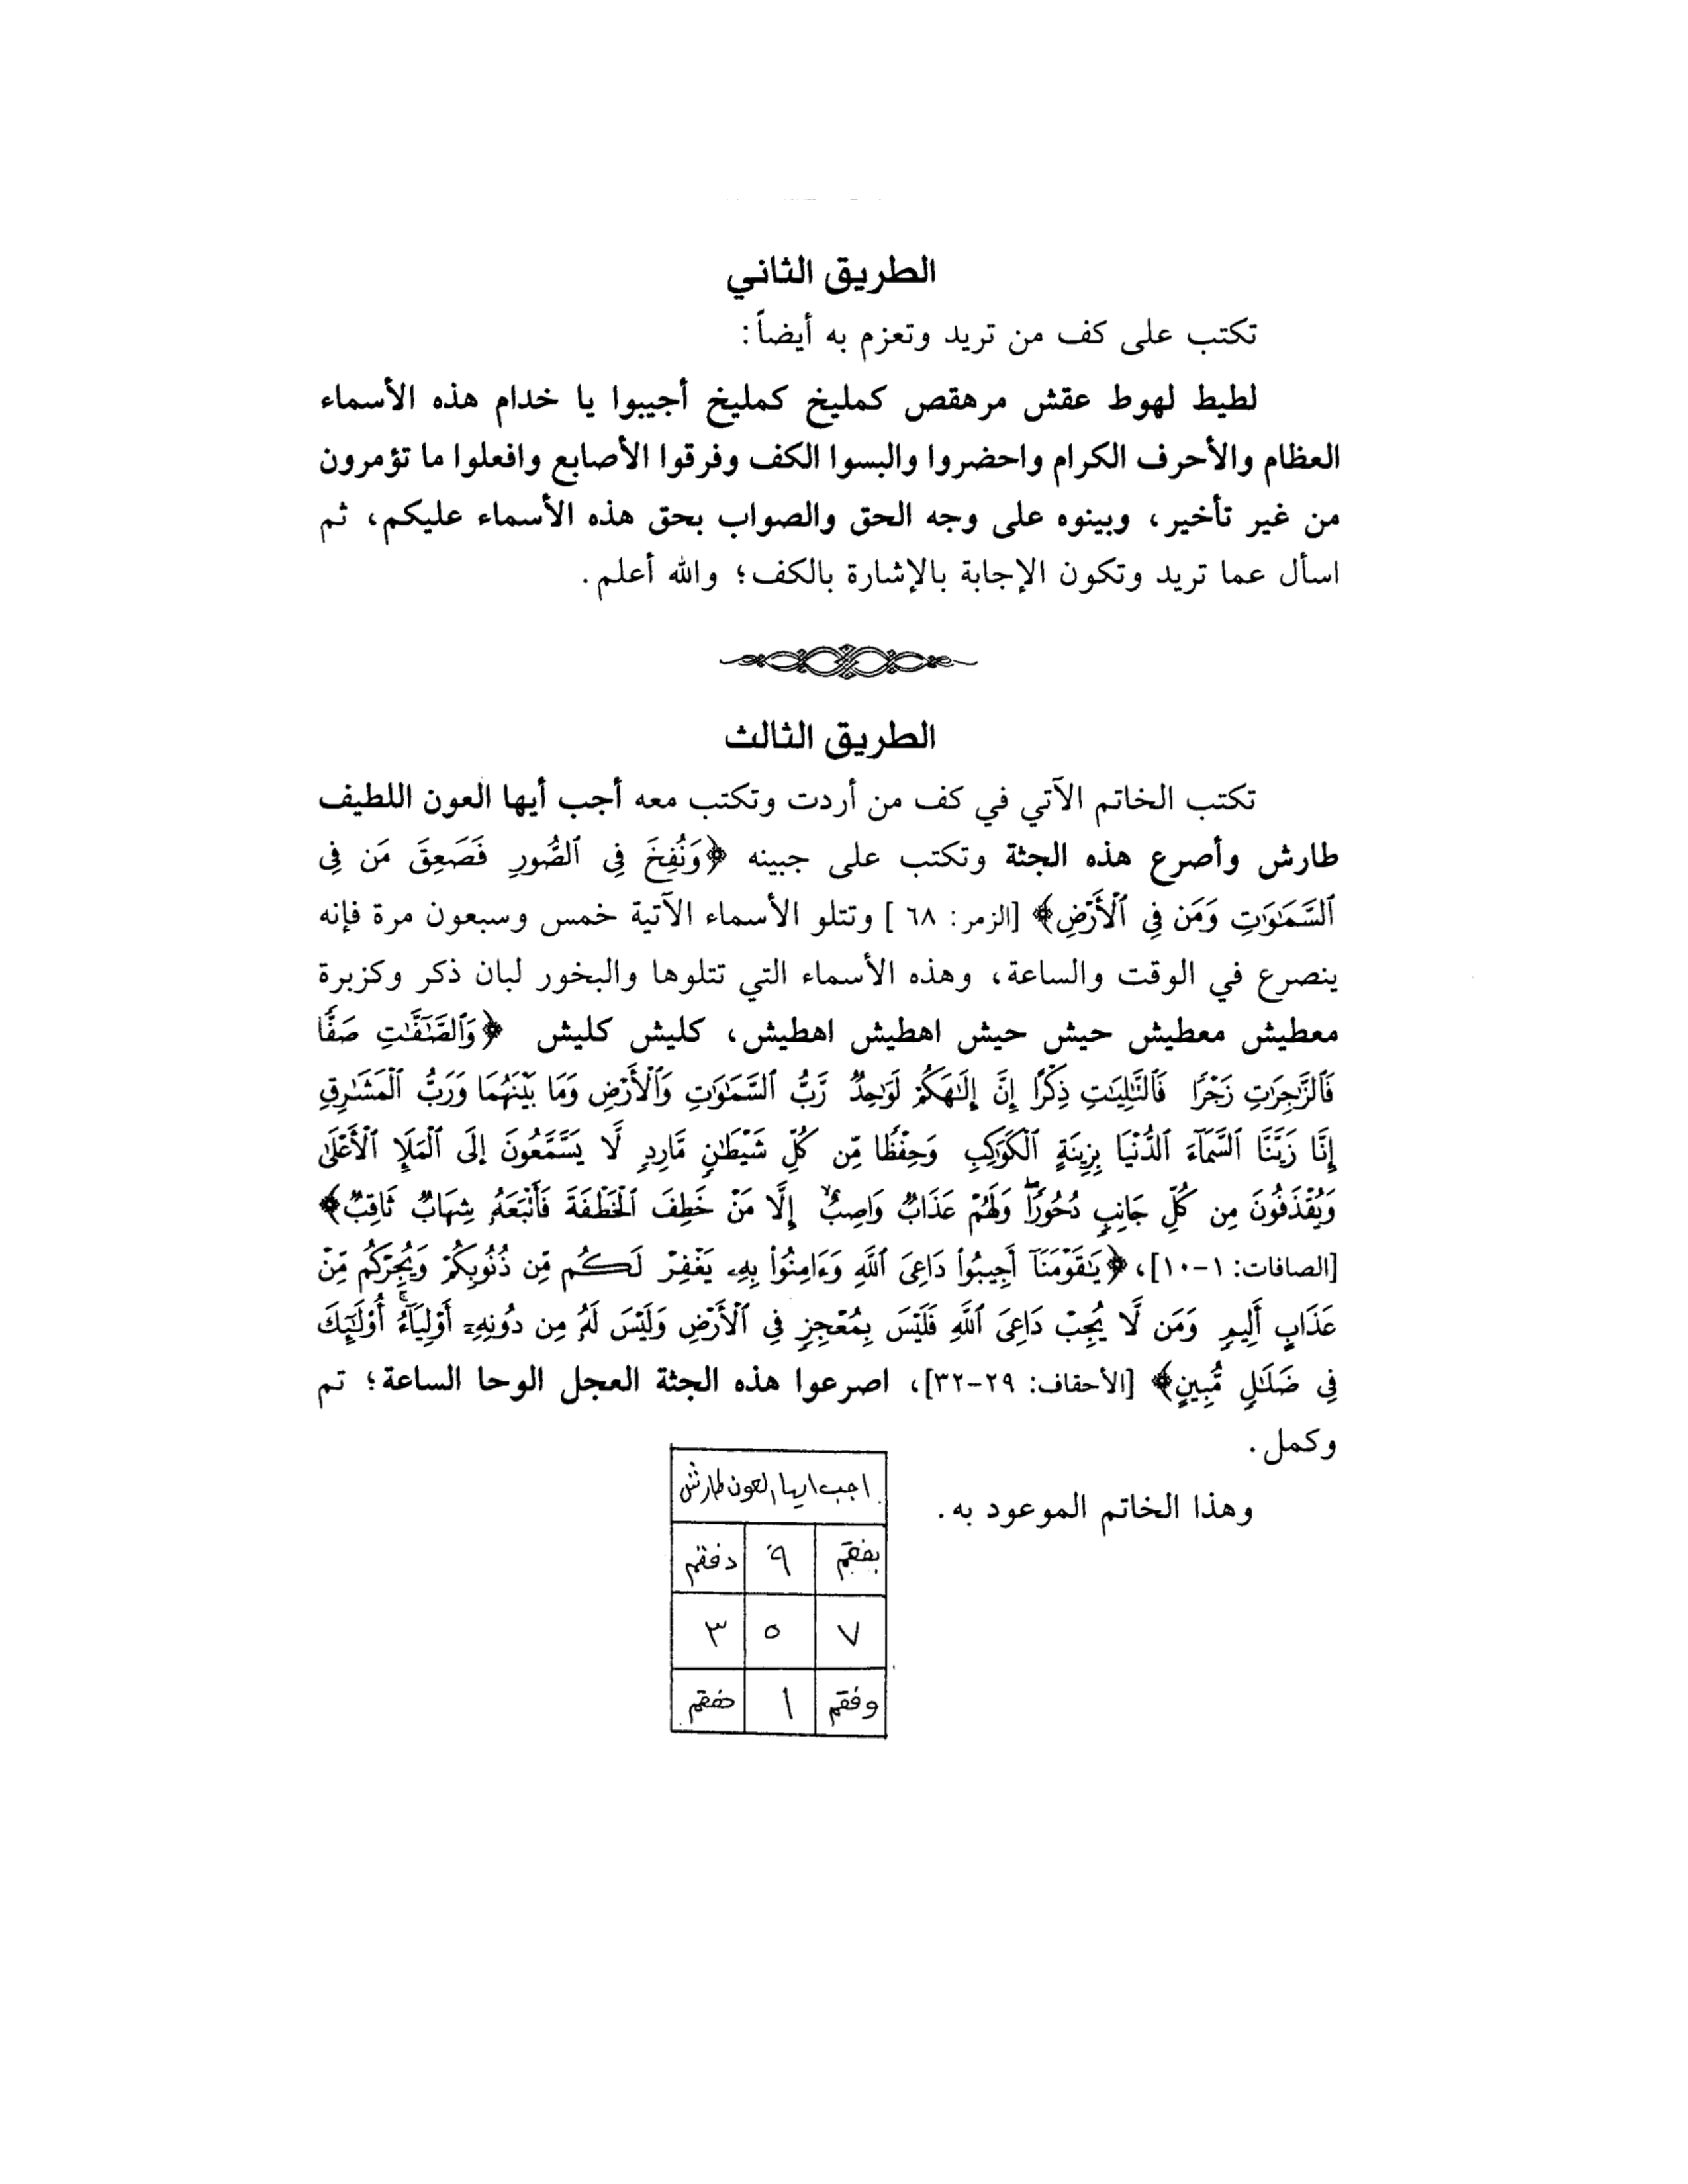 الطريق الثاني
تكتب على كف من تريد وتعزم به أيضاً:
لطيط لهوط عقش مرهقص كمليخ كمليخ أجيبوا يا خدام هذه الأسماء
العظام والأحرف الكرام واحضروا والبسوا الكف وفرقوا الأصابع وافعلوا ما تؤمرون
من غير تأخير، وبينوه على وجه الحق والصواب بحق هذه الأسماء عليكم، ثم
اسأل عما تريد وتكون الإجابة بالإشارة بالكف؛ والله أعلم.
الطريق الثالث
تكتب الخاتم الآتي في كف من أردت وتكتب معه أجب أيها العون اللطيف
طارش وأصرع هذه الجثة وتكتب على جبينه ﴿وَنُفِخَ فِى ٱلصُّورِ فَصَعِقَ مَن فِى
ٱلسَّمَٰوَٰتِ وَمَن فِى ٱلْأَرْضِ﴾ [الزمر: ٦٨ ] وتتلو الأسماء الآتية خمس وسبعون مرة فإنه
ينصرع في الوقت والساعة، وهذه الأسماء التي تتلوها والبخور لبان ذكر وكزبرة
معطيش معطيش حيش حيش اهطيش اهطيش، كليش كليش ﴿وَٱلصَّٰٓفَّٰتِ صَفًّا
فَٱلزَّٰجِرَٰتِ زَجْرًا فَٱلتَّٰلِيَٰتِ ذِكْرًا إِنَّ إِلَٰهَكُمْ لَوَٰحِدٌ رَّبُّ ٱلسَّمَٰوَٰتِ وَٱلْأَرْضِ وَمَا بَيْنَهُمَا وَرَبُّ ٱلْمَشَٰرِقِ
إِنَّا زَيَّنَّا ٱلسَّمَآءَ ٱلدُّنْيَا بِزِينَةٍ ٱلْكَوَاكِبِ وَحِفْظًا مِّن كُلِّ شَيْطَٰنٍ مَّارِدٍ لَّا يَسَّمَّعُونَ إِلَى ٱلْمَلَإِ ٱلْأَعْلَىٰ
وَيُقْذَفُونَ مِن كُلِّ جَانِبٍ دُحُورًا ۖ وَلَهُمْ عَذَابٌ وَاصِبٌ إِلَّا مَنْ خَطِفَ ٱلْخَطْفَةَ فَأَتْبَعَهُۥ شِهَابٌ ثَاقِبٌ﴾
[الصافات: ١-١٠]، ﴿يَٰقَوْمَنَآ أَجِيبُوا۟ دَاعِىَ ٱللَّهِ وَءَامِنُوا۟ بِهِۦ يَغْفِرْ لَكُم مِّن ذُنُوبِكُمْ وَيُجِرْكُم مِّنْ
عَذَابٍ أَلِيمٍ وَمَن لَّا يُجِبْ دَاعِىَ ٱللَّهِ فَلَيْسَ بِمُعْجِزٍ فِى ٱلْأَرْضِ وَلَيْسَ لَهُۥ مِن دُونِهِۦٓ أَوْلِيَآءُ ۚ أُو۟لَٰٓئِكَ
فِى ضَلَٰلٍ مُّبِينٍ﴾ [الأحقاف: ٢٩-٣٢]، اصرعوا هذه الجثة العجل الوحا الساعة؛ تم
وكمل.
وهذا الخاتم الموعود به.
اجب ايها العون طارش
بفقم ٩ دفقم
٧ ٥ ٣
وفقم ١ حفقم